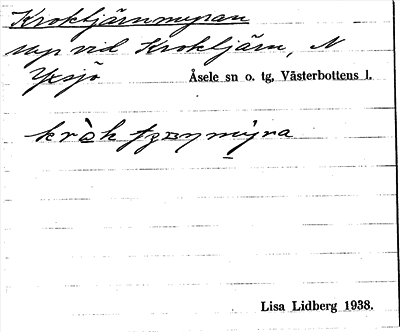 Kroktjärnmyran
Myr vid Kroktjärn, N
Yxsjö
Åsele sn o. tg, Västerbottens l.
Lisa Lidberg 1938.